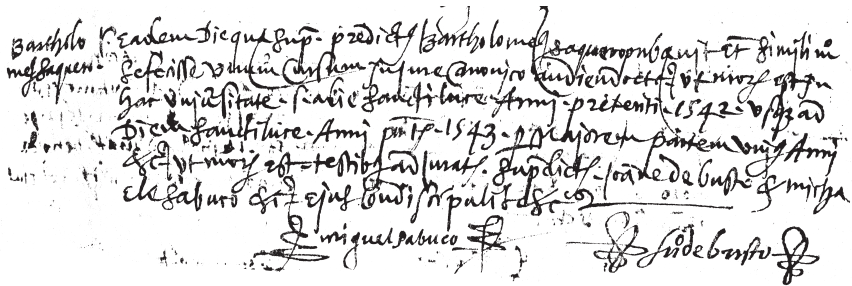 Bartholo
meꝰ saquero.
Eadem die qua sup̃. predictꝰ Bartholomeꝰ saquero probavit et simili mo
se fecisse unum cursum in jure canonico audiend
hac universitate. s. a die sancti luce. Anni. presenti. 1542. usqʒ ad
Diem sancti luce. Anni 1543. majorem partem Anni
ut moris est. testibꝰ ad juratꝰ. supdictꝰ. Joãne de busto & micha
ele sabuco ejus condiscipulis &c
miguel sabuco
Juº de busto